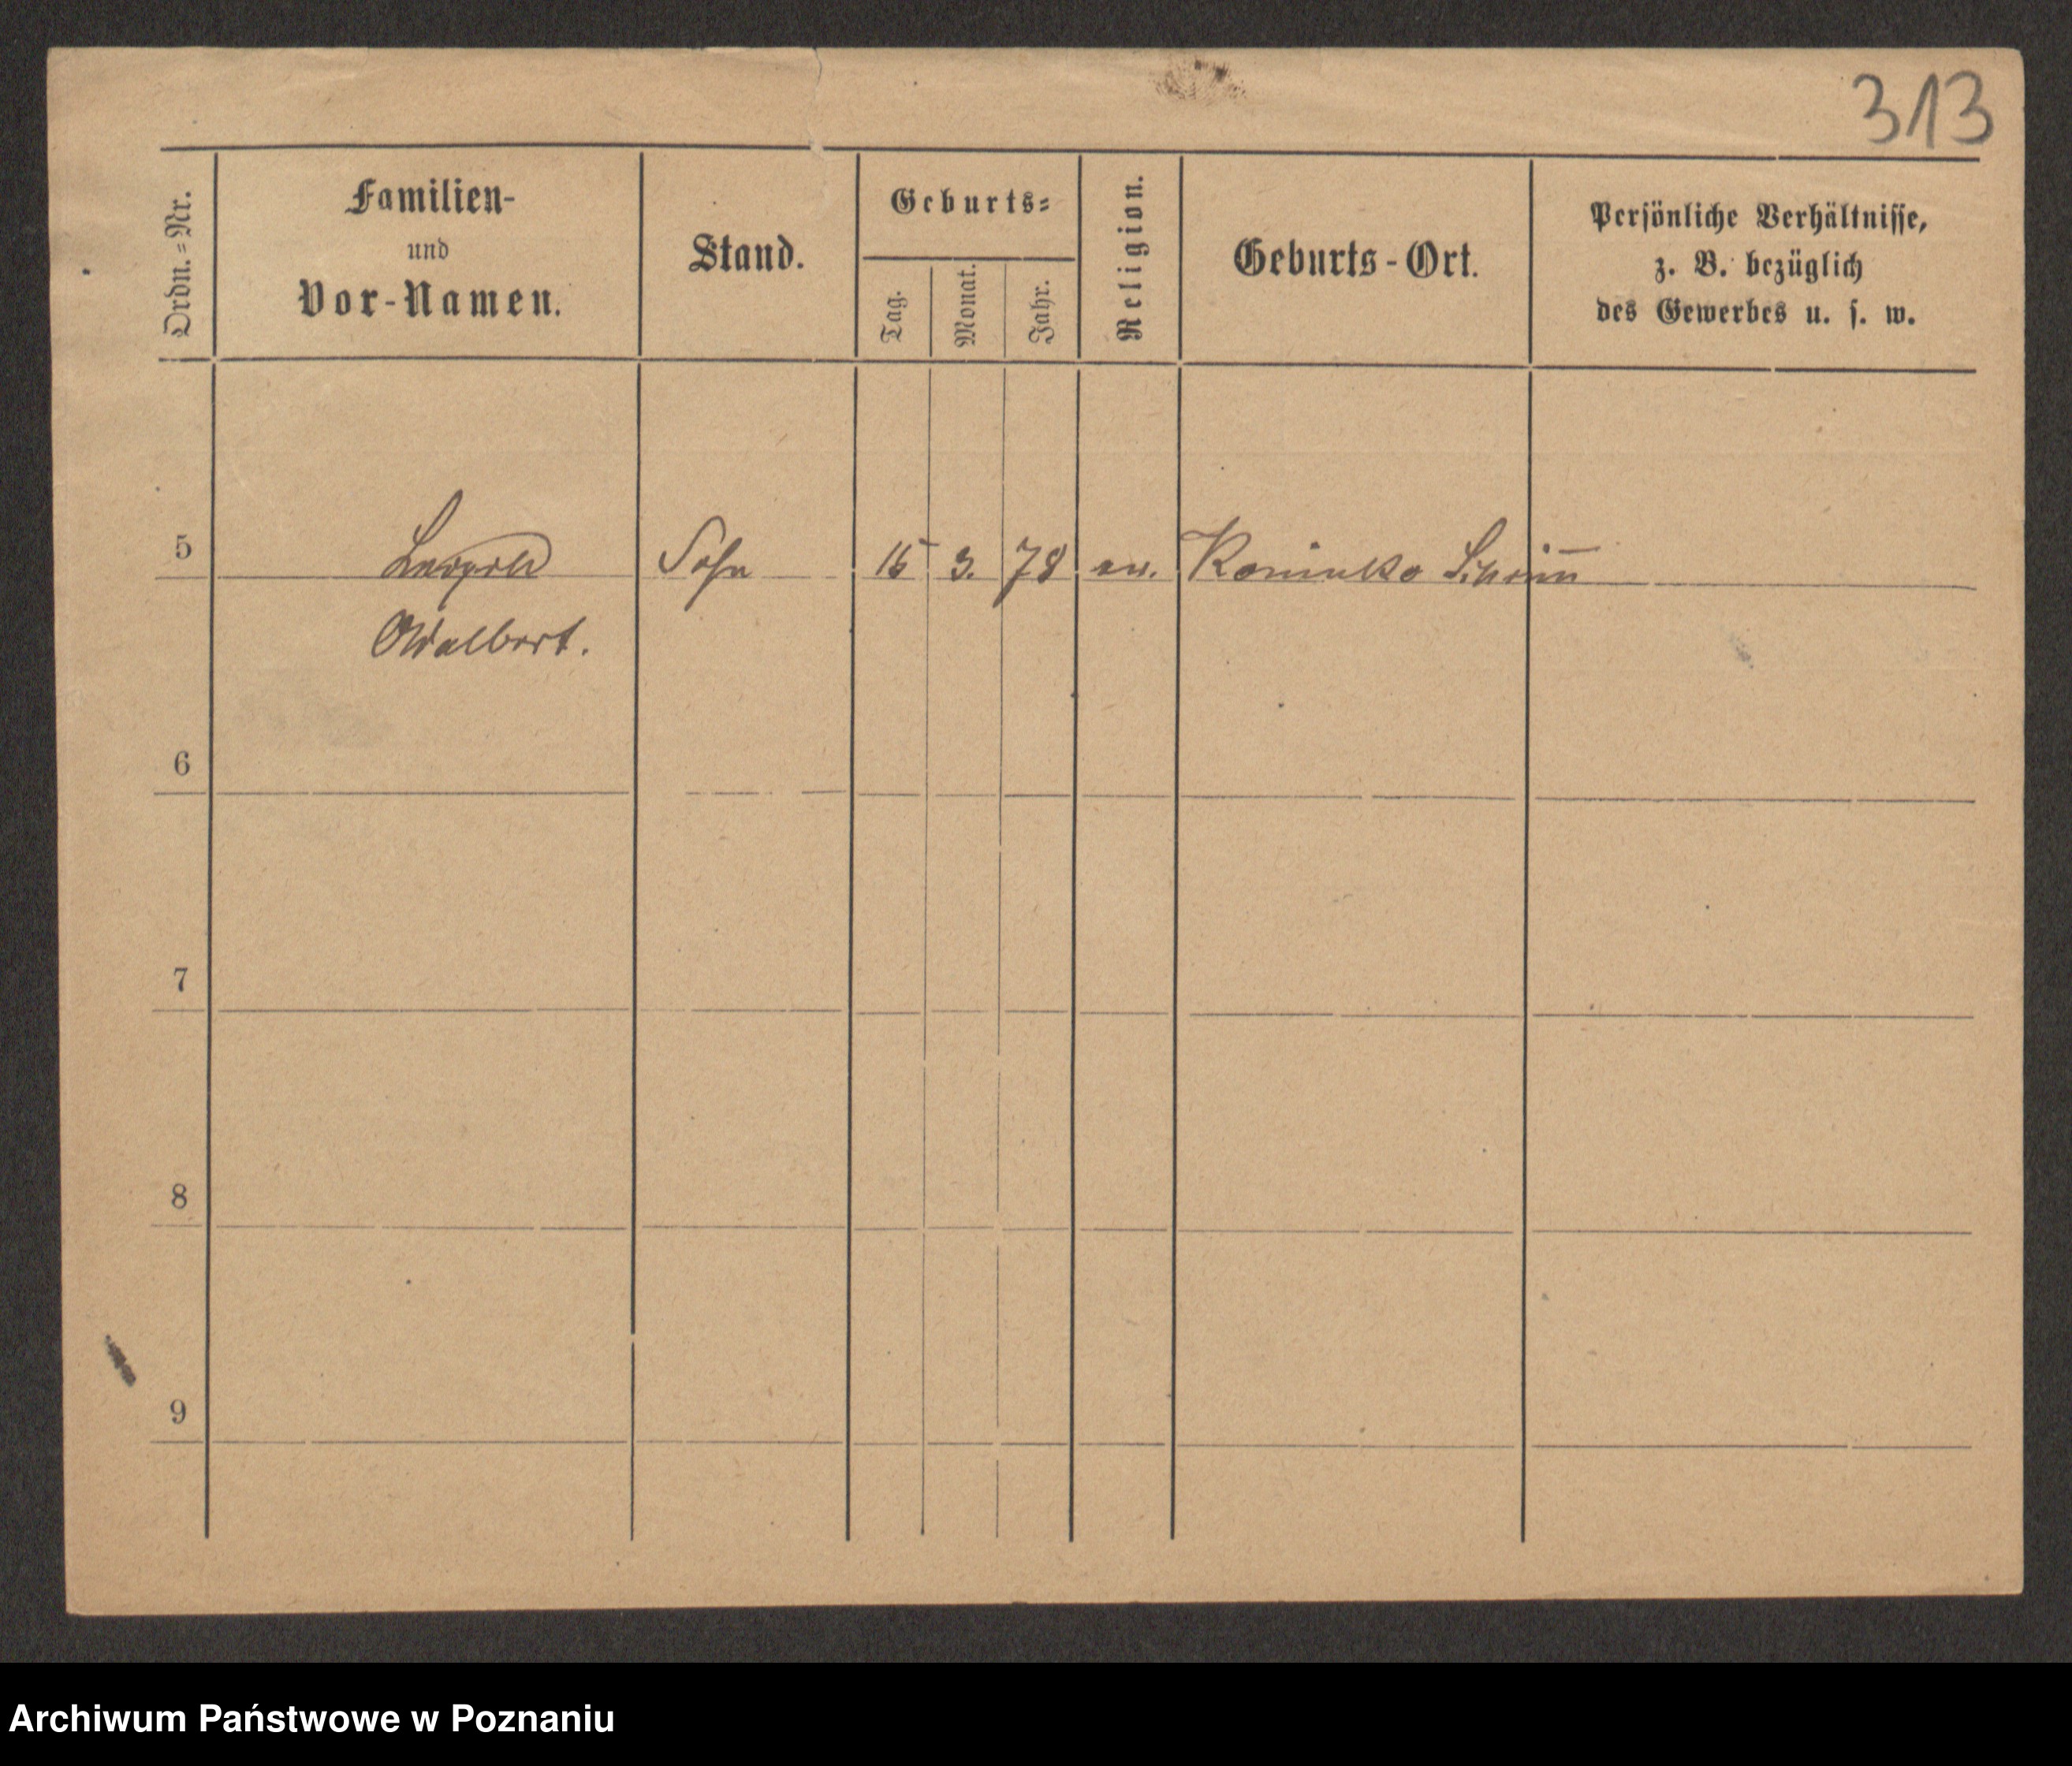 313
Ordn.=Nr.
Familien-
und
Vor-Namen.
Stand.
Geburts=
Tag.
Monat.
Jahr.
Religion.
Geburts-Ort.
Persönliche Verhältnisse,
z. B. bezüglich
des Gewerbes u. s. w.
5 Leopold Sohn 15 3. 78 ev. Kominko
Adalbert.
6
7
8
9
Archiwum Państwowe w Poznaniu